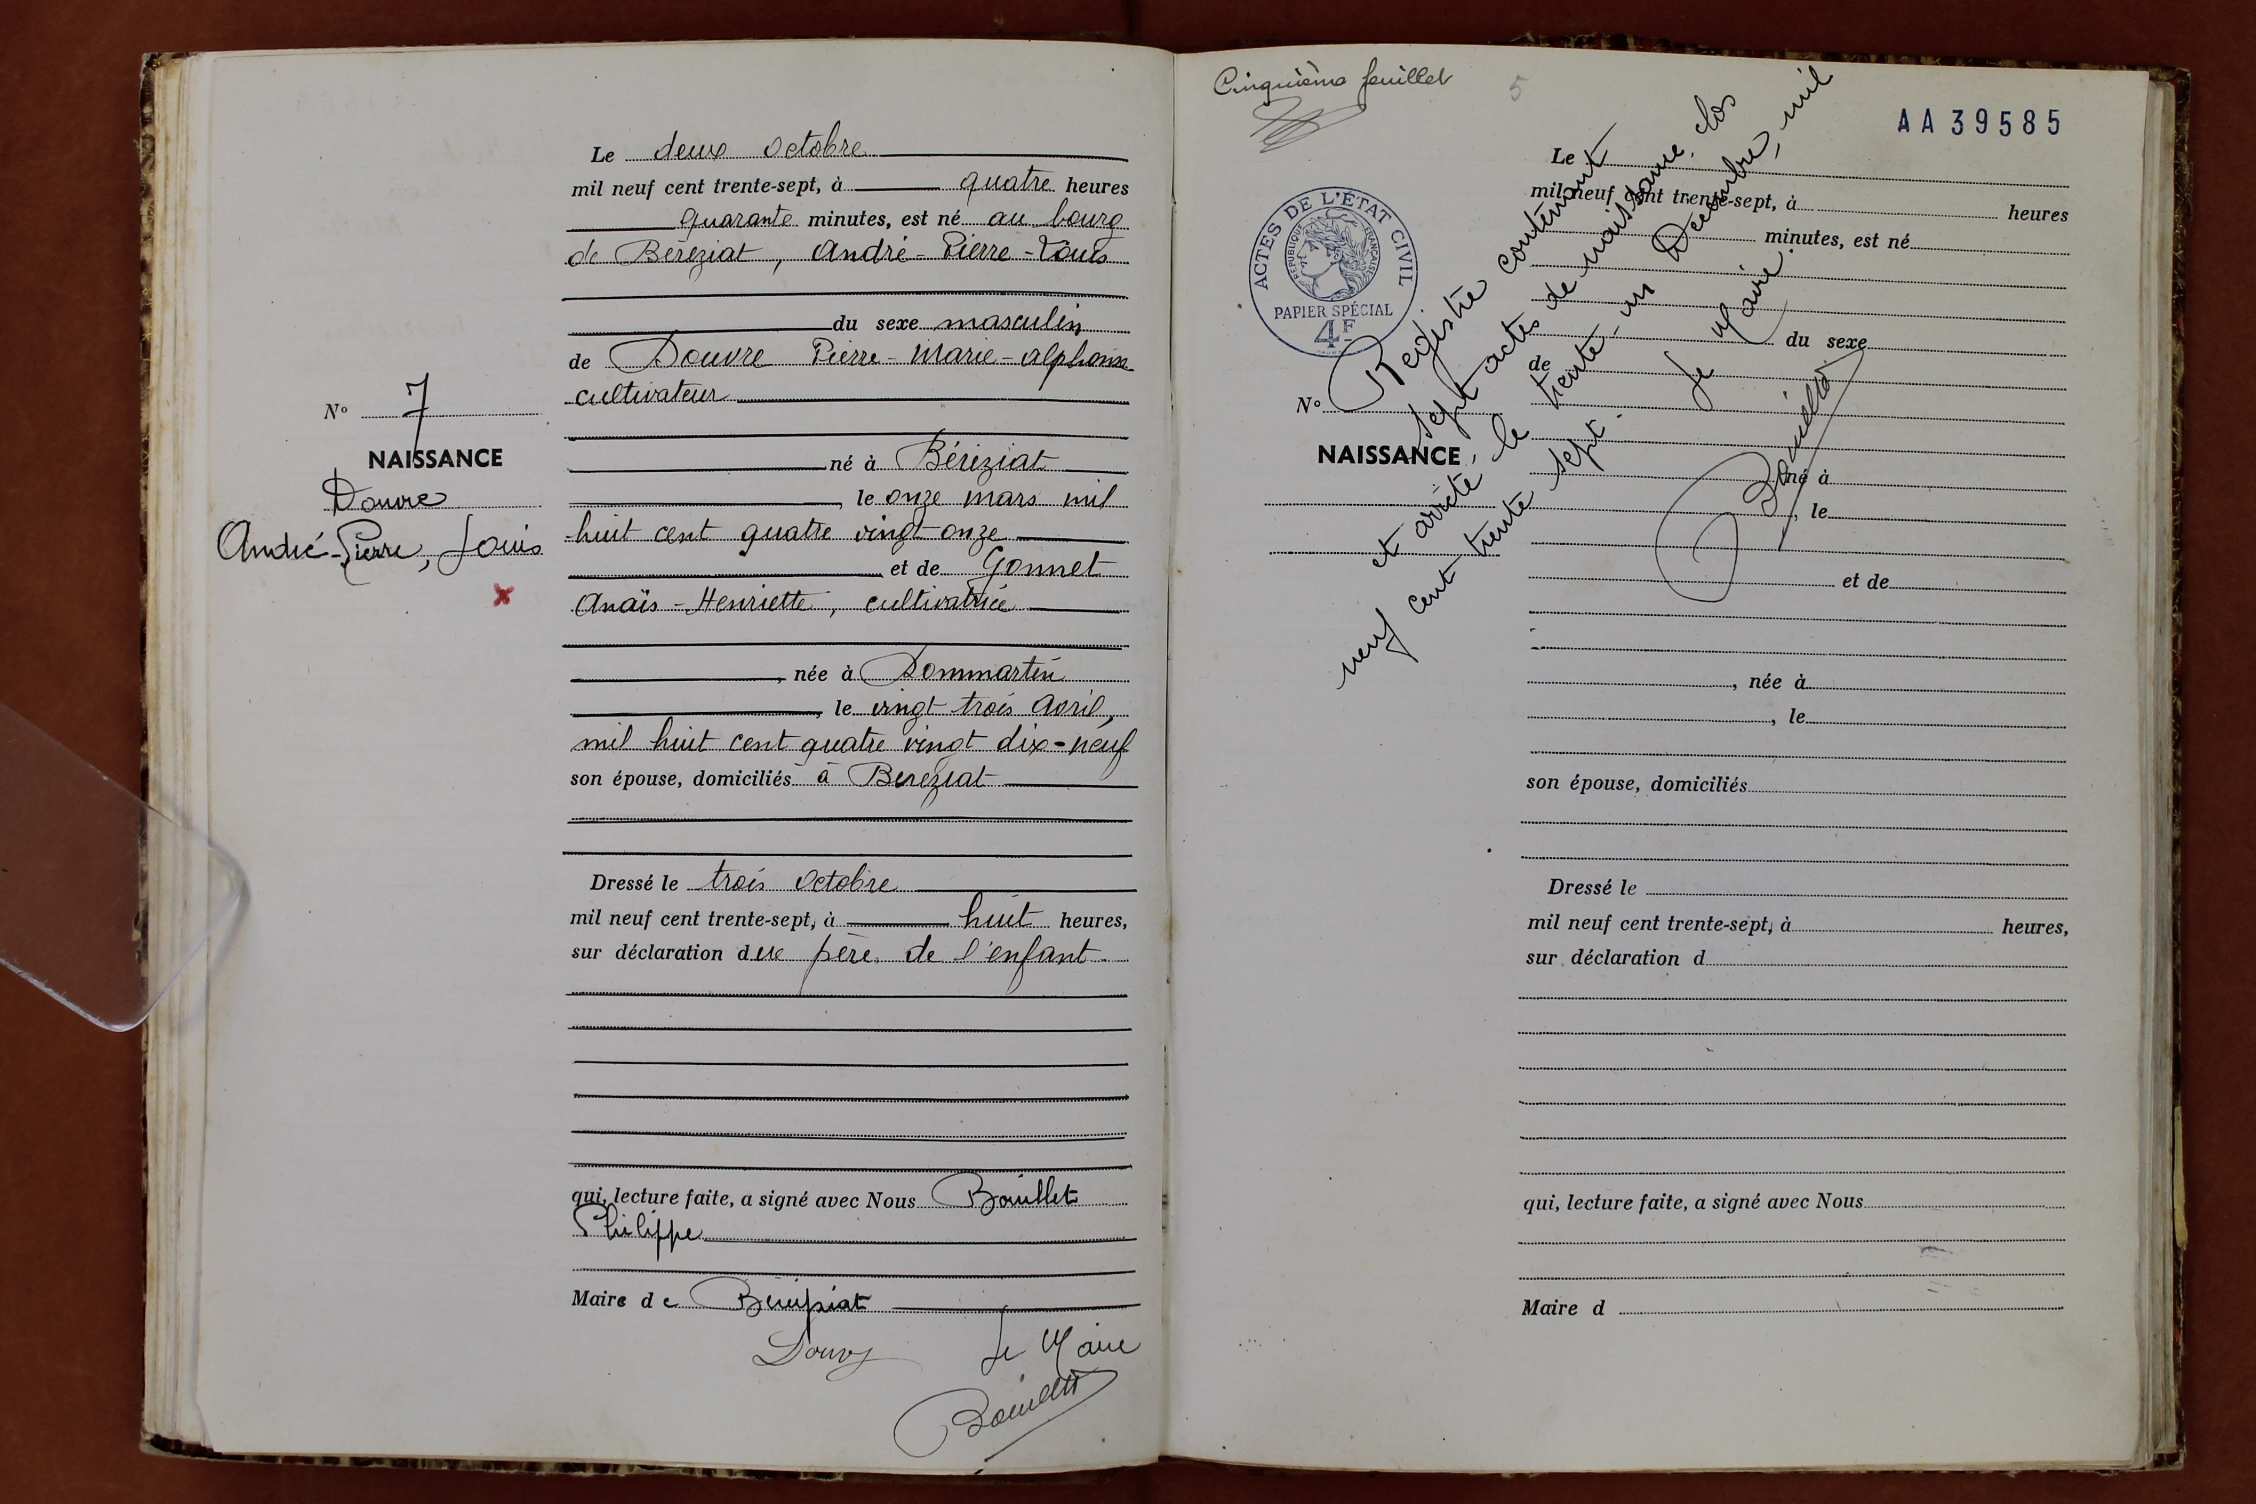 Le deux Octobre
mil neuf cent trente-sept, à quatre heures
quarante minutes, est né au bourg
de Béréziat, André-Pierre-Louis
du sexe masculin
de Douvre Pierre-Marie-Alphonse
cultivateur
né à Béréziat
, le onze mars mil
huit cent quatre vingt-onze
et de Gonnet
Anaïs-Henriette, cultivatrice
, née à Dommartin
, le vingt trois Avril,
mil huit cent quatre vingt dix-neuf
son épouse, domiciliés à Béréziat
Dressé le trois Octobre
mil neuf cent trente-sept, à huit heures,
sur déclaration du père de l'enfant
qui, lecture faite, a signé avec Nous Bouillet
Philippe
Maire de Béréziat
Le Maire
Bouillet
No 7
NAISSANCE
Douvre
André-Pierre, Louis
Cinquième feuillet
5
AA 39585
ACTES DE L'ÉTAT CIVIL
RÉPUBLIQUE FRANÇAISE
PAPIER SPÉCIAL
4F
No
NAISSANCE
Registre contenant
sept actes de naissance, clos
et arrêté le trente-un Décembre, mil
neuf cent trente sept.
Le Maire.
Bouillet
Le
mil neuf cent trente-sept, à heures
minutes, est né
du sexe
de
né à
, le
et de
, née à
, le
son épouse, domiciliés
Dressé le
mil neuf cent trente-sept, à heures,
sur déclaration d
qui, lecture faite, a signé avec Nous
Maire d